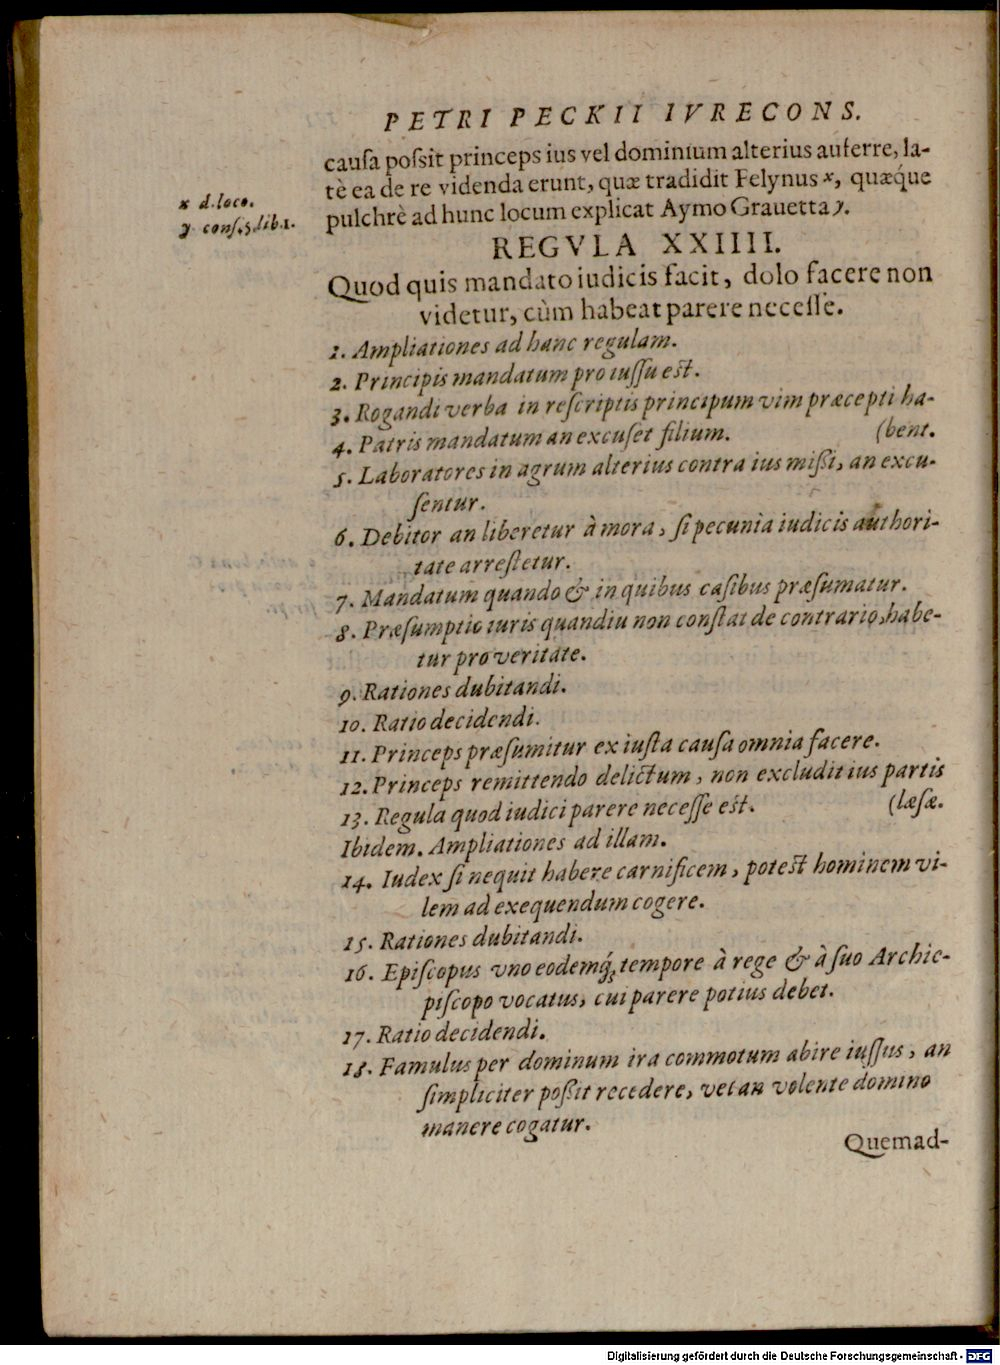 PETRI PECKII IVRECONS.
causa possit princeps ius vel dominium alterius auferre, la-
tè ea de re videnda erunt, quæ tradidit Felynus x, quæque
x d. loco.
pulchrè ad hunc locum explicat Aymo Grauetta y.
y cons. 5. lib. 1.
REGVLA XXIIII.
Quod quis mandato iudicis facit, dolo facere non
videtur, cùm habeat parere necesse.
1. Ampliationes ad hanc regulam.
2. Principis mandatum pro iussu est.
3. Rogandi verba in rescriptis principum vim præcepti ha-
4. Patris mandatum an excuset filium. (bent.
5. Laboratores in agrum alterius contra ius missi, an excu-
sentur.
6. Debitor an liberetur à mora, si pecunia iudicis authori-
tate arrestetur.
7. Mandatum quando & in quibus casibus præsumatur.
8. Præsumptio iuris quandiu non constat de contrario, habe-
tur pro veritate.
9. Rationes dubitandi.
10. Ratio decidendi.
11. Princeps præsumitur ex iusta causa omnia facere.
12. Princeps remittendo delictum, non excludit ius partis
13. Regula quod iudici parere necesse est. (læsæ.
Ibidem. Ampliationes ad illam.
14. Iudex si nequit habere carnificem, potest hominem vi-
lem ad exequendum cogere.
15. Rationes dubitandi.
16. Episcopus vno eodemq́; tempore à rege & à suo Archie-
piscopo vocatus, cui parere potius debet.
17. Ratio decidendi.
18. Famulus per dominum ira commotum abire iussus, an
simpliciter possit recedere, vel an volente domino
manere cogatur.
Quemad-
Digitalisierung gefördert durch die Deutsche Forschungsgemeinschaft - DFG